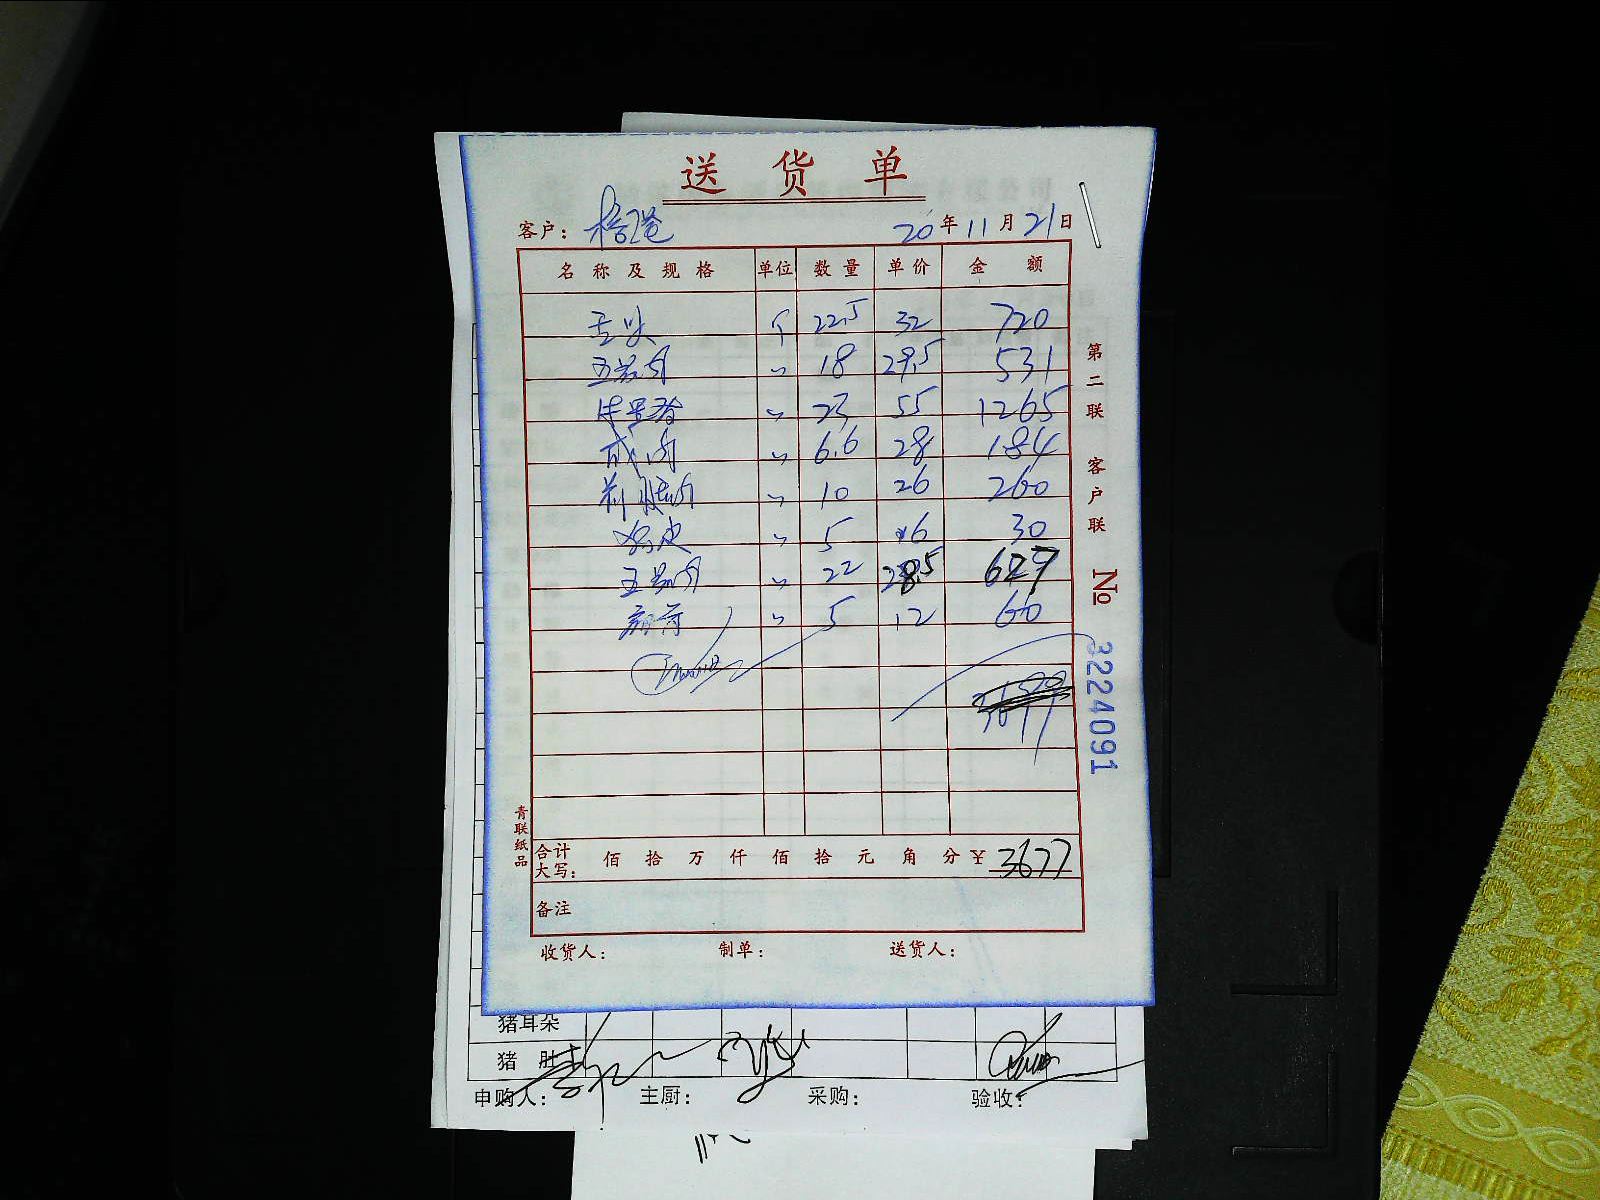 送货单
客户：
20年11月21日
名称及规格 单位 数量 单价 金额
舌头 个 22.5 32 720
五花肉 〃 18 29.5 531
〃 23 55 1265
肉 〃 6.6 28 184
前腿肉 〃 10 26 260
〃 5 6 30
五花肉 〃 22 28.5 627
〃 5 12 60
第二联 客户联
No 3224091
青联纸品
合计大写： 佰 拾 万 仟 佰 拾 元 角 分 ¥ 3677
备注
收货人： 制单： 送货人：
猪耳朵
猪肚
申购人： 主厨： 采购： 验收：